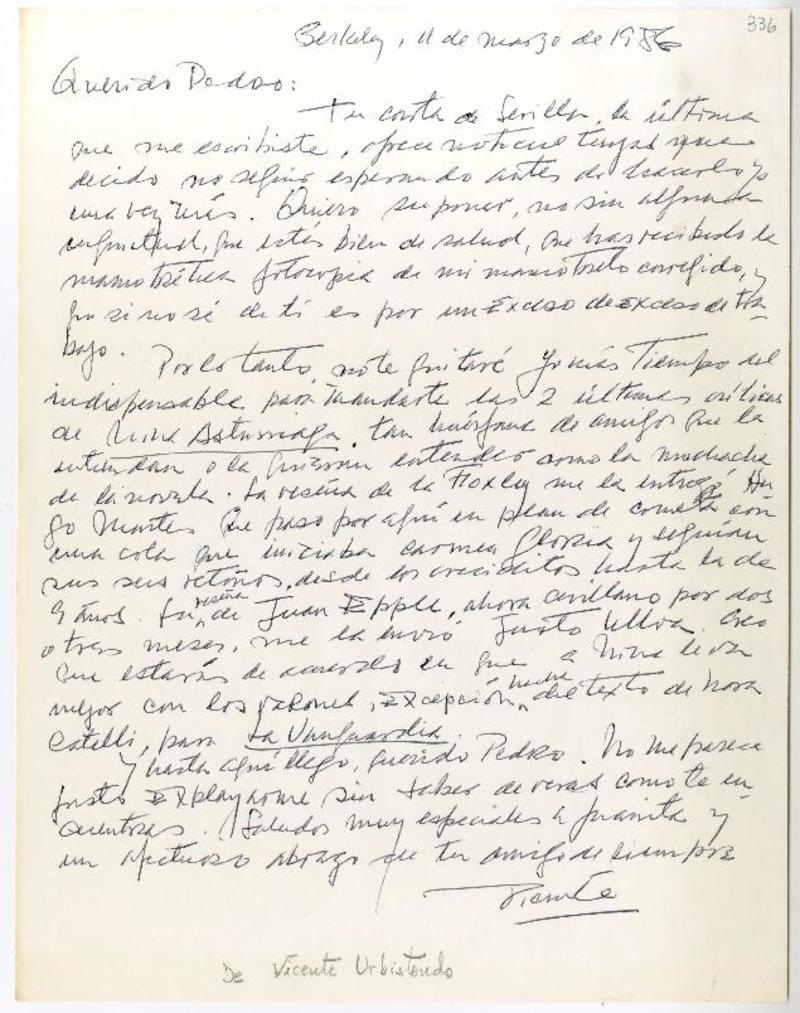 336
Berkeley, 11 de marzo de 1986
Querido Pedro:
Tu carta de Sevilla, la última
que me escribiste, hace que tengas que
decido no seguir esperando antes de hacerlo yo
una vez más. Quiero suponer, no sin alguna
inquietud, que estás bien de salud, que has recibido la
mamotrética fotocopia de mi mamotreto corregido, y
que si no sé de ti es por un Exceso de Exceso de tra-
bajo.
Por lo tanto, no te quitaré yo más Tiempo del
indispensable para mandarte las 2 últimas críticas
de Nina Asturriaga, tan huérfana de amigos que la
entiendan o la quieran entender como la muchacha
de la novela. La reseña de la Foxley me la entregó Hu
go Montes que pasó por aquí en plan de cometa con
una cola que iniciaba Carmen Gloria y seguían
sus sus retoños, desde los creciditos hasta la de
9 años. La reseña de Juan Epple, ahora sevillano por dos
o tres meses, me la envió Justo Ulloa. Creo
que estarás de acuerdo en que a Nina le va
mejor con los varones, Excepción hecha del texto de Nora
Catelli, para La Vanguardia.
Y hasta aquí llego, querido Pedro. No me parece
justo Explayarme sin saber de veras como te en-
cuentras. Saludos muy especiales a Juanita y
un afectuoso abrazo de tu amigo de siempre
Vicente
De Vicente Urbistondo